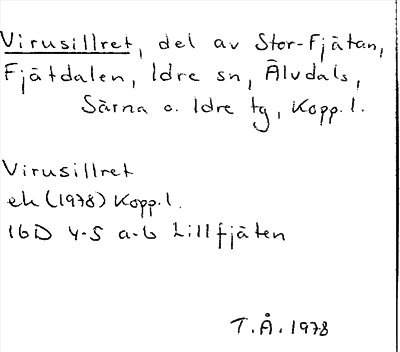 Virusillret, del av Stor-Fjätan,
Fjätdalen, Idre sn, Älvdals,
Särna o. Idre tg, Kopp.l.
Virusillret
ek (1978) Kopp.l.
16D 4-5 a-b Lillfjäten
T.Å. 1978